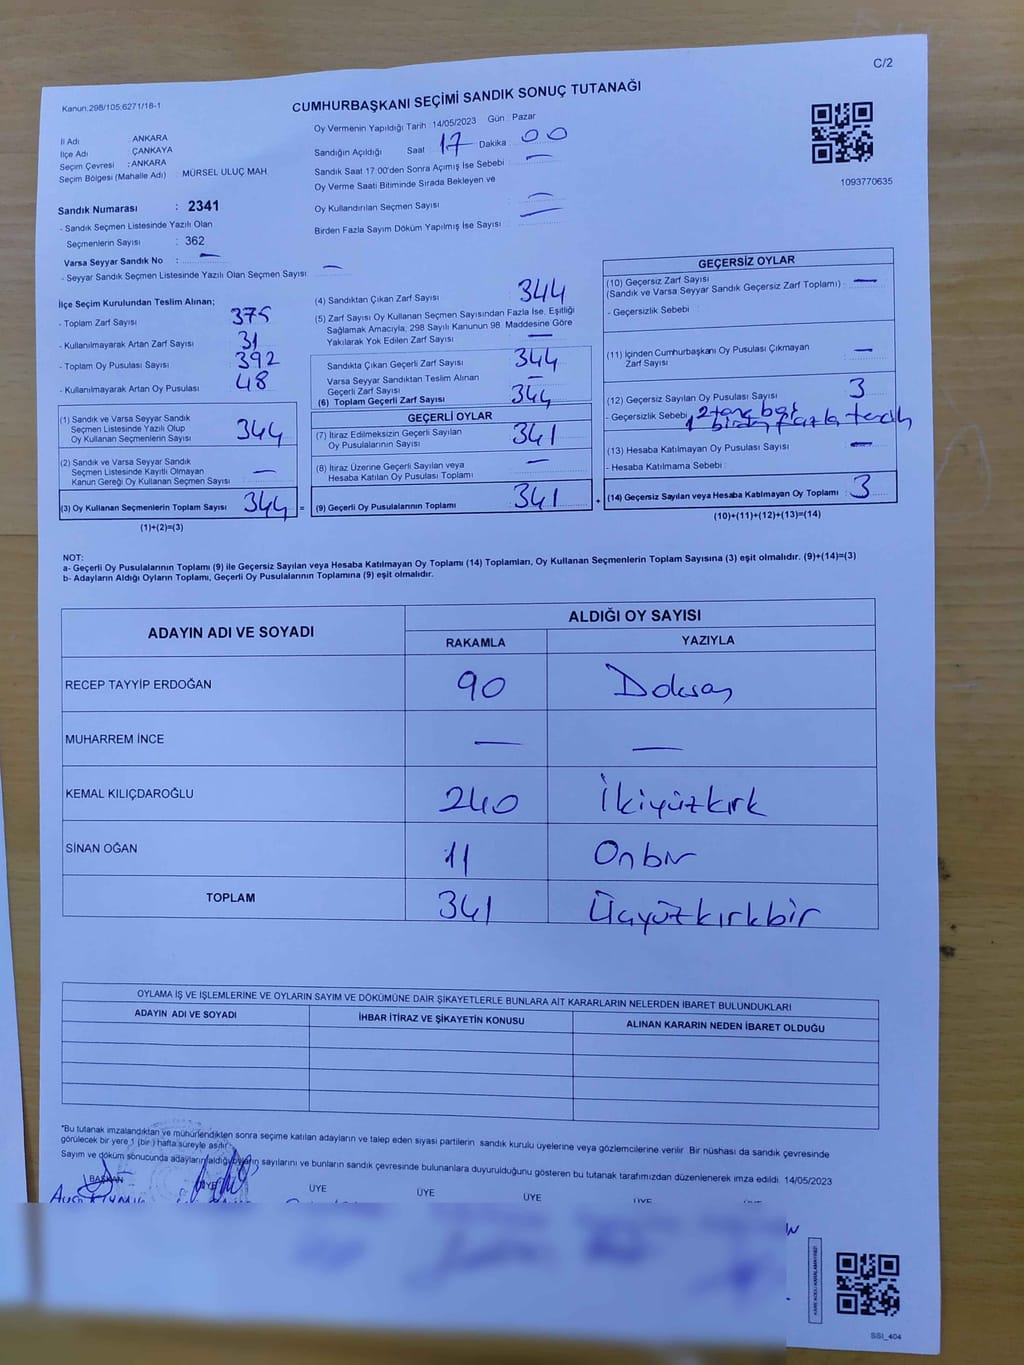 C/2
Kanun.298/105,6271/18-1
CUMHURBAŞKANI SEÇİMİ SANDIK SONUÇ TUTANAĞI
İl Adı : ANKARA
İlçe Adı : ÇANKAYA
Seçim Çevresi : ANKARA
Seçim Bölgesi (Mahalle Adı) : MÜRSEL ULUÇ MAH
Sandık Numarası : 2341
- Sandık Seçmen Listesinde Yazılı Olan
Seçmenlerin Sayısı : 362
Varsa Seyyar Sandık No : —
- Seyyar Sandık Seçmen Listesinde Yazılı Olan Seçmen Sayısı : —
Oy Vermenin Yapıldığı Tarih : 14/05/2023 Gün : Pazar
Sandığın Açıldığı Saat : 17 Dakika : 00
Sandık Saat 17:00'den Sonra Açımış İse Sebebi : —
Oy Verme Saati Bitiminde Sırada Bekleyen ve
Oy Kullandırılan Seçmen Sayısı : —
Birden Fazla Sayım Döküm Yapılmış İse Sayısı : —
1093770635
İlçe Seçim Kurulundan Teslim Alınan;
- Toplam Zarf Sayısı : 375
- Kullanılmayarak Artan Zarf Sayısı : 31
- Toplam Oy Pusulası Sayısı : 392
- Kullanılmayarak Artan Oy Pusulası : 48
(1) Sandık ve Varsa Seyyar Sandık
Seçmen Listesinde Yazılı Olup
Oy Kullanan Seçmenlerin Sayısı : 344
(2) Sandık ve Varsa Seyyar Sandık
Seçmen Listesinde Kayıtlı Olmayan
Kanun Gereği Oy Kullanan Seçmen Sayısı : —
(3) Oy Kullanan Seçmenlerin Toplam Sayısı : 344 =
(1)+(2)=(3)
(4) Sandıktan Çıkan Zarf Sayısı : 344
(5) Zarf Sayısı Oy Kullanan Seçmen Sayısından Fazla İse, Eşitliği
Sağlamak Amacıyla, 298 Sayılı Kanunun 98. Maddesine Göre
Yakılarak Yok Edilen Zarf Sayısı : —
Sandıkta Çıkan Geçerli Zarf Sayısı : 344
Varsa Seyyar Sandıktan Teslim Alınan
Geçerli Zarf Sayısı : —
(6) Toplam Geçerli Zarf Sayısı : 344
GEÇERLİ OYLAR
(7) İtiraz Edilmeksizin Geçerli Sayılan
Oy Pusulalarının Sayısı : 341
(8) İtiraz Üzerine Geçerli Sayılan veya
Hesaba Katılan Oy Pusulası Toplamı : —
(9) Geçerli Oy Pusulalarının Toplamı : 341 +
GEÇERSİZ OYLAR
(10) Geçersiz Zarf Sayısı
(Sandık ve Varsa Seyyar Sandık Geçersiz Zarf Toplamı) : —
- Geçersizlik Sebebi :
(11) İçinden Cumhurbaşkanı Oy Pusulası Çıkmayan
Zarf Sayısı : —
(12) Geçersiz Sayılan Oy Pusulası Sayısı : 3
- Geçersizlik Sebebi : 2 tane boş
1 birden fazla tercih
(13) Hesaba Katılmayan Oy Pusulası Sayısı : —
- Hesaba Katılmama Sebebi :
(14) Geçersiz Sayılan veya Hesaba Katılmayan Oy Toplamı : 3
(10)+(11)+(12)+(13)=(14)
NOT:
a- Geçerli Oy Pusulalarının Toplamı (9) ile Geçersiz Sayılan veya Hesaba Katılmayan Oy Toplamı (14) Toplamları, Oy Kullanan Seçmenlerin Toplam Sayısına (3) eşit olmalıdır. (9)+(14)=(3)
b- Adayların Aldığı Oyların Toplamı, Geçerli Oy Pusulalarının Toplamına (9) eşit olmalıdır.
ADAYIN ADI VE SOYADI ALDIĞI OY SAYISI
RAKAMLA YAZIYLA
RECEP TAYYİP ERDOĞAN 90 Doksan
MUHARREM İNCE — —
KEMAL KILIÇDAROĞLU 240 İkiyüzkırk
SİNAN OĞAN 11 Onbir
TOPLAM 341 Üçyüzkırkbir
OYLAMA İŞ VE İŞLEMLERİNE VE OYLARIN SAYIM VE DÖKÜMÜNE DAİR ŞİKAYETLERLE BUNLARA AİT KARARLARIN NELERDEN İBARET BULUNDUKLARI
ADAYIN ADI VE SOYADI İHBAR İTİRAZ VE ŞİKAYETİN KONUSU ALINAN KARARIN NEDEN İBARET OLDUĞU
*Bu tutanak imzalandıktan ve mühürlendikten sonra seçime katılan adayların ve talep eden siyasi partilerin sandık kurulu üyelerine veya gözlemcilerine verilir. Bir nüshası da sandık çevresinde
görülecek bir yere 1 (bir) hafta süreyle asılır.
Sayım ve döküm sonucunda adayların aldığı oyların sayılarını ve bunların sandık çevresinde bulunanlara duyurulduğunu gösteren bu tutanak tarafımızdan düzenlenerek imza edildi. 14/05/2023
BAŞKAN ÜYE ÜYE ÜYE ÜYE ÜYE ÜYE
SSI_404